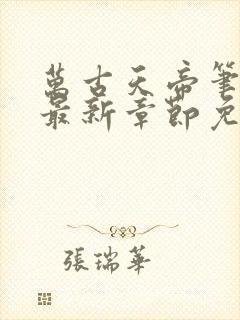 萬古天帝筆
最新章節免
張瑞華